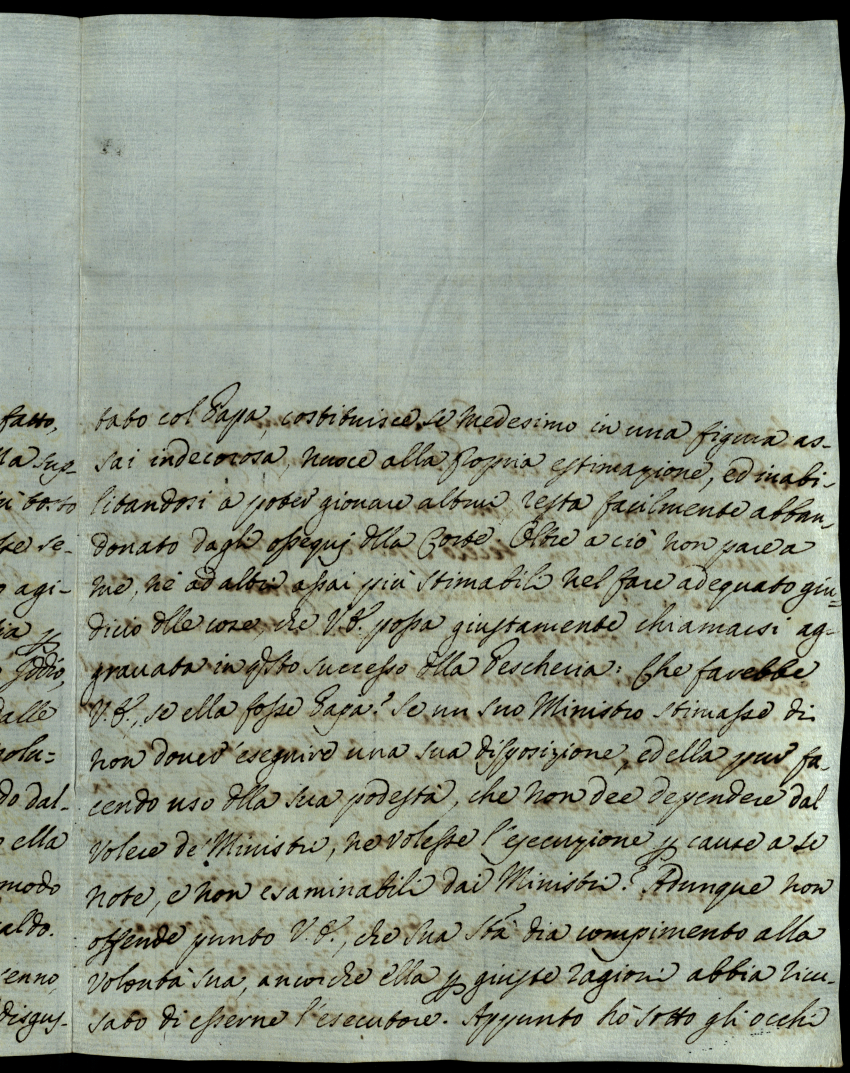 fatto,
lla sug-
ù tosto
se-
agi-
Iddio,
dalle
solu-
do dal-
ella
modo
aldo.
enno,
disgus-
tato col Papa, costituisce se medesimo in una figura as-
sai indecorosa, nuoce alla propria estimazione, ed inabi-
litandosi a poter giovare altrui resta facilmente abban-
donato dagli ossequj dlla Corte. Oltre a ciò non pare a
me, nè ad altri assai più stimabili nel fare adequato giu-
dicio dlle cose, che V.E. possa giustamente chiamarsi ag-
gravata in qsto successo dlla Pescheria: Che farebbe
V.E., se ella fosse Papa? Se un suo Ministro stimasse di
non dover eseguire una sua disposizione, ed ella pur fa-
cendo uso dlla sua podestà, che non dee dependere dal
volere de' Ministri, ne volesse l'esecuzione p cause a se
note, e non esaminabili dai Ministri? Adunque non
offende punto V.E., che sua Stà dia compimento alla
volontà sua, ancorche ella p giuste ragioni abbia ricu-
sato di esserne l'esecutore. Appunto hò sotto gli occhi